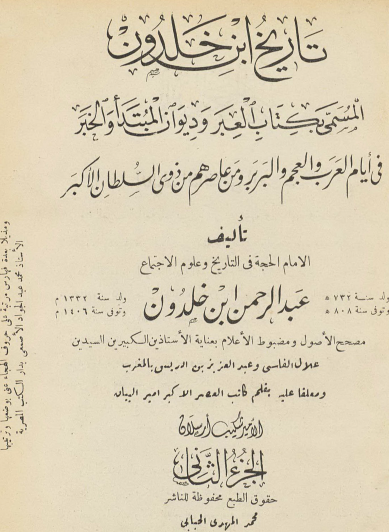 تاريخ ابن خلدون
المسمى بكتاب العبر وديوان المبتدأ والخبر
في أيام العرب والعجم والبربر ومن عاصرهم من ذوي السلطان الأكبر
تأليف
الامام الحجة في التاريخ وعلوم الاجتماع
عبد الرحمن ابن خلدون
ولد سنة ٧٣٢ ه
وتوفي سنة ٨٠٨ ه
ولد سنة ١٣٣٢ م
وتوفي سنة ١٤٠٦ م
مصحح الأصول ومضبوط الأعلام بعناية الأستاذين الكبيرين السيدين
علال الفاسي وعبد العزيز بن ادريس بالمغرب
ومعلقا عليه بقلم كاتب العصر الاكبر امير البيان
الأمير شكيب أرسلان
الجزء الثاني
حقوق الطبع محفوظة للناشر
محمد المهدي الحبابي
ومذيلا بعدة فهارس مرتبة على حروف الهجاء عني بوضعها وترتيبها
الأستاذ محمد عبد الجواد الأصمعي بدار الكتب المصرية